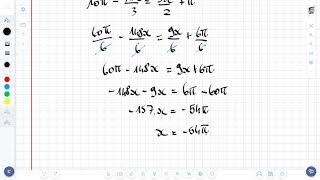 10π - /3 = /2 + π
60π/6 - 148x/6 = 9x/6 + 6π/6
60π - 148x = 9x + 6π
-148x - 9x = 6π - 60π
-157x = -54π
x = -54π